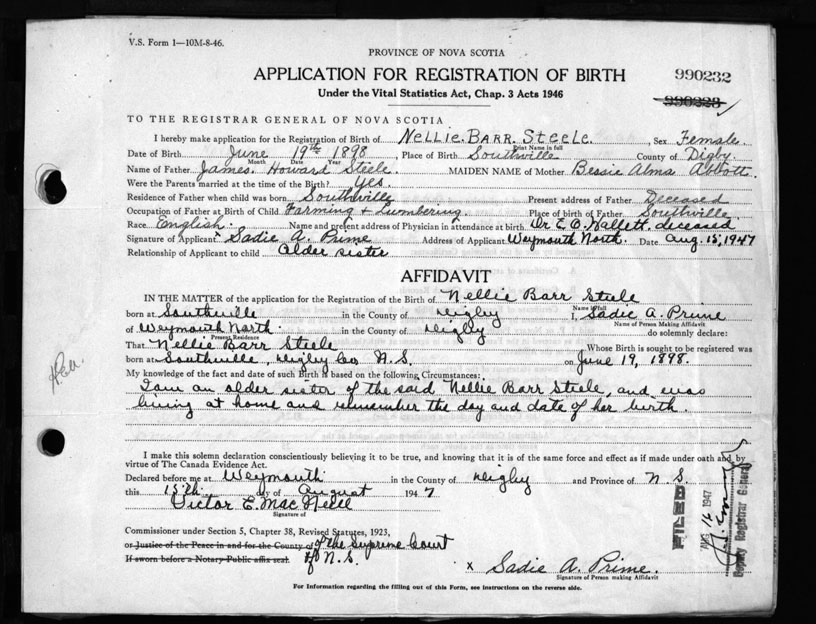 V.S. Form 1—10M-8-46.
PROVINCE OF NOVA SCOTIA
APPLICATION FOR REGISTRATION OF BIRTH
990232
Under the Vital Statistics Act, Chap. 3 Acts 1946
990223
TO THE REGISTRAR GENERAL OF NOVA SCOTIA
I hereby make application for the Registration of Birth of Nellie Barr Steele, Sex Female
Print Name in full
Date of Birth June 19th 1898, Place of Birth Southville County of Digby
Date Month Year
Name of Father James Howard Steele MAIDEN NAME of Mother Bessie Alma Abbott
Were the Parents married at the time of the Birth? Yes.
Residence of Father when child was born Southville Present address of Father Deceased
Occupation of Father at Birth of Child Farming & Lumbering. Place of birth of Father Southville
Race English. Name and present address of Physician in attendance at birth Dr E. O. deceased
Signature of Applicant x Sadie A. Prime Address of Applicant Weymouth North. Date Aug. 15, 1947
Relationship of Applicant to child older sister
AFFIDAVIT
IN THE MATTER of the application for the Registration of the Birth of Nellie Barr Steele
Name in full
born at Southville in the County of Digby I, Sadie A. Prime
Name of Person Making Affidavit
of Weymouth North. in the County of Digby do solemnly declare:
Present Residence
That Nellie Barr Steele Whose Birth is sought to be registered was
born at Southville, Digby Co N.S. on June 19, 1898.
My knowledge of the fact and date of such Birth is based on the following Circumstances:
I am an older sister of the said Nellie Barr Steele, and was
living at home and remember the day and date of her birth.
I make this solemn declaration conscientiously believing it to be true, and knowing that it is of the same force and effect as if made under oath and by
virtue of The Canada Evidence Act.
Declared before me at Weymouth in the County of Digby and Province of N.S.
this 15th day of August 1947
Victor E. MacNeill
Signature of
Commissioner under Section 5, Chapter 38, Revised Statutes, 1923,
or Justice of the Peace in and for the County of of the Supreme Court
If sworn before a Notary Public affix seal. of N.S.
x Sadie A. Prime.
Signature of Person making Affidavit
For Information regarding the filling out of this Form, see instructions on the reverse side.
FILED
1947
Deputy Registrar General